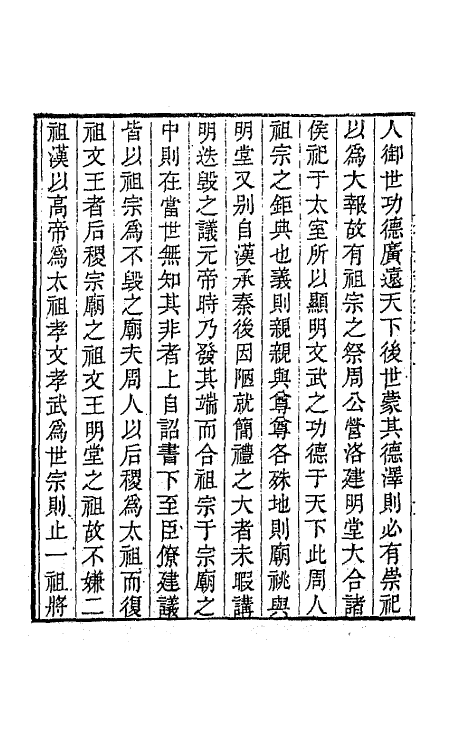 人御世功德廣遠天下後世蒙其德澤則必有崇祀
以爲大報故有祖宗之祭周公營洛建明堂大合諸
侯祀于太室所以顯明文武之功德于天下此周人
祖宗之鉅典也義則親親與尊尊各殊地則廟祧與
明堂又別自漢承秦後因陋就簡禮之大者未暇講
明迭毀之議元帝時乃發其端而合祖宗于宗廟之
中則在當世無知其非者上自詔書下至臣僚建議
皆以祖宗爲不毀之廟夫周人以后稷爲太祖而復
祖文王者后稷宗廟之祖文王明堂之祖故不嫌二
祖漢以高帝爲太祖孝文孝武爲世宗則止一祖將